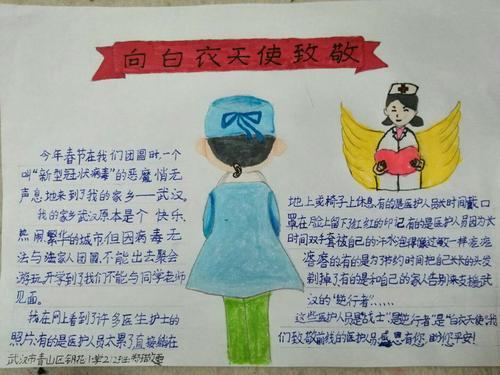 向白衣天使致敬
今年春节在我们团圆时,一个
叫“新型冠状病毒”的恶魔悄无
声息地来到了我的家乡——武汉。
我的家乡武汉原本是个 快乐、
热闹、繁华的城市但因病毒无
法与远家人团圆、不能出去聚会
游玩、开学到了我们不能与同学老师
见面。
我在网上看到了许多医生、护士的
照片:有的是医护人员太累了直接躺在
武汉市青山区钢花小学
地上或椅子上休息,有的是医护人员长时间戴口
罩在脸上留下红红的印记有的是医护人员因为长
时间双手套被自己的汗水泡得像过敏一样
的有的是为了节约时间把自己长长的头发
剃掉了有的是和自己的家人告别来支援武
汉的“逆行者”......
这些医护人员是“战士”是“逆行者”是“白衣天使”,我
们致敬前线的医护人员,感恩有您,助您平安!